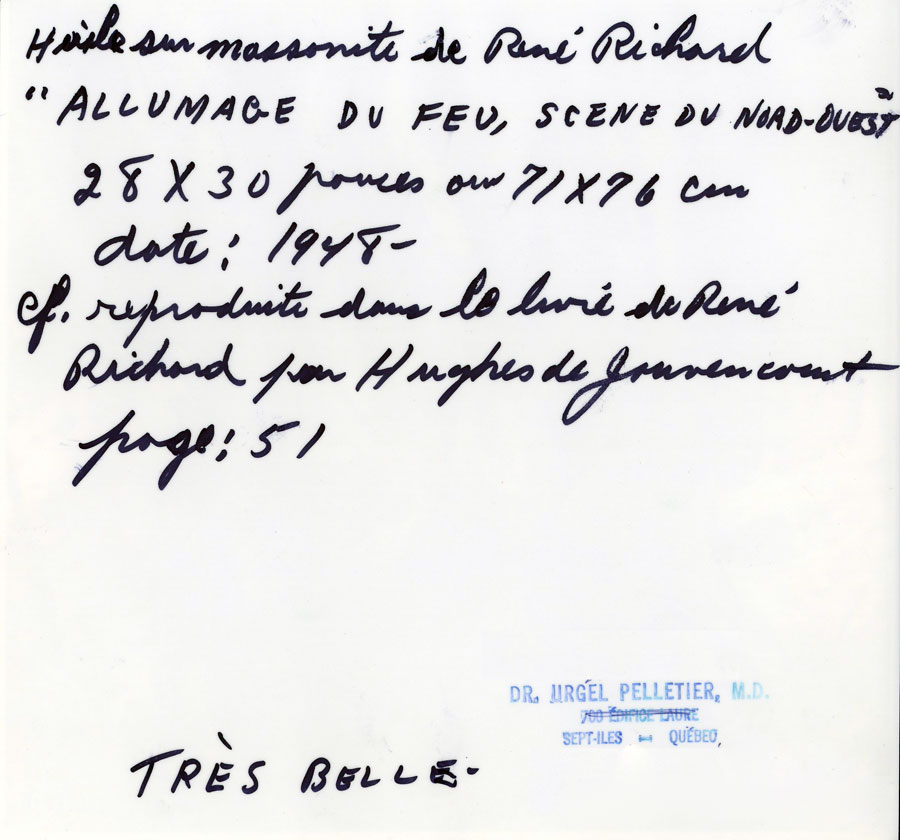 Huile sur massonite de René Richard
" ALLUMAGE DU FEU, SCENE DU NORD-OUEST "
28 X 30 pouces ou 71 X 76 cm
date: 1948-
cf. reproduite dans le livre de René
Richard par Hughes de Jouvencourt
page: 51
DR. URGEL PELLETIER, M.D.
700 ÉDIFICE LAURE
SEPT-ILES - QUÉBEC,
TRÈS BELLE-